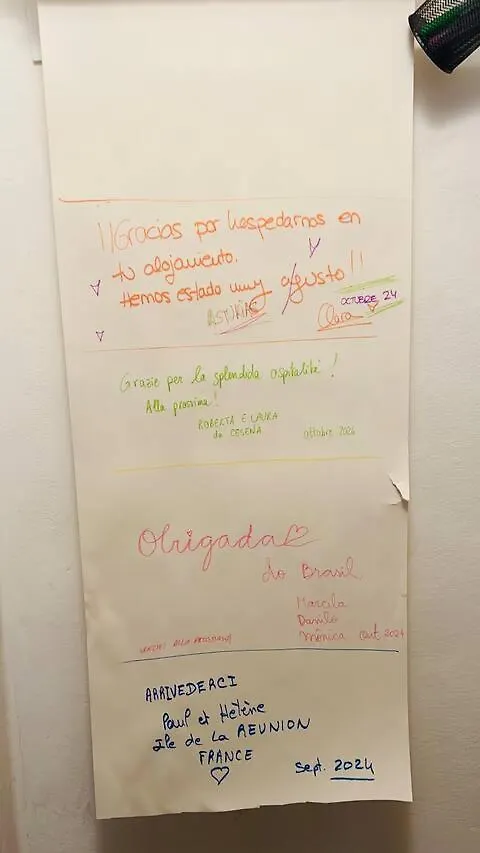 ¡¡Gracias por hospedarnos en
tu alojamiento.
Hemos estado muy agusto!!
ASTURIAS
OCTUBRE 24
Clara
Grazie per la splendida ospitalità!
Alla prossima!
ROBERTA E LAURA
da CESENA
ottobre 2024
Obrigada
do Brasil
Marcila
Danilo
Mônica Out. 2024
ARRIVEDERCI
Paul et Hélène
Ile de La REUNION
FRANCE
Sept. 2024